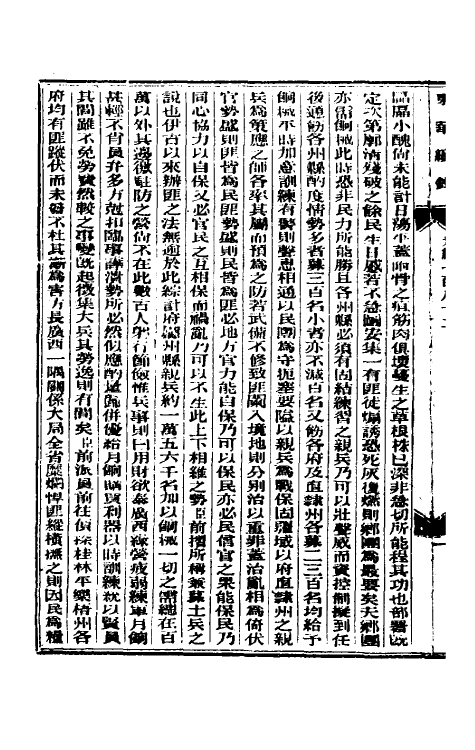 區區小醜尚未能計日蕩平蓋癰骨之疽筋肉俱壞蔓生之草根株已深非急切所能程其功也部署既
定次第廓清殘破之餘民生日蹙若不急籌安集一有匪徒煽誘恐死灰復燃則鄉團為最要矣夫鄉團
亦需餉械此時恐非民力所能勝且各州縣必須有固結練習之親兵乃可以壯聲威而資控制擬到任
後通飭各州縣酌度情勢多者募三百名小者亦不減百名又飭各府及直隸州各募二三百名均給予
餉械平時加意訓練有警則聲息相通以民團為守扼塞要隘以親兵為戰保固疆域以府直隸州之親
兵為策應之師各率其屬而預為之防若武備不修致匪闌入境地則分別治以重罪蓋治亂相為倚伏
官勢盛則匪皆為民匪勢盛則民皆為匪必地方官力能自保乃可以保民亦必民信官之果能保民乃
同心協力以自保又必官民之互相保而禍亂乃可以不生此上下相維之勢臣前摺所稱兼募土兵之
說也伊古以來辦匪之法無逾於此綜計府廳州縣親兵約一萬五六千名加以餉械一切之需總在百
萬以外其邊徼駐防之營尚不在此數古人躬行節儉惟兵事則曰用財欲泰廣西綠營疲弱練軍月餉
甚輕不肖員弁多方剋扣臨事譁潰勢所必然似應酌量
其間雖不免勞費然較之事變既起徵集大兵其勞逸則有間矣臣前派員前往偵探桂林平樂梧州各
府均有匪蹤伏而未發不杜其漸為害方長廣西一隅關係大局全省糜爛悍匪縱橫撫之則因民為糧